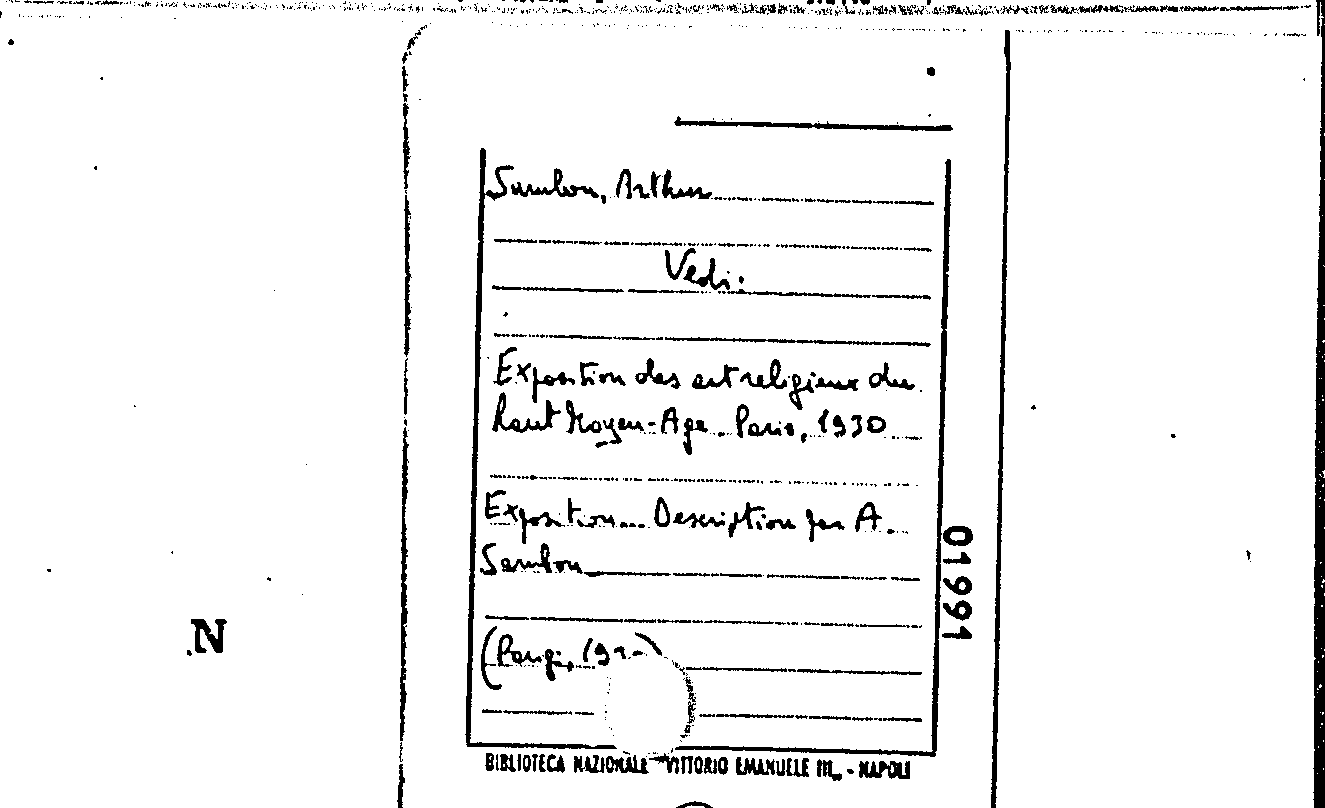 Sambon, Arthur
Vedi:
Exposition des art religieux du
haut Moyen-Age. Paris, 1930
Exposition... Description par A.
Sambon
(Parigi, 19
01991
N
BIBLIOTECA NAZIONALE "VITTORIO EMANUELE III„ - NAPOLI